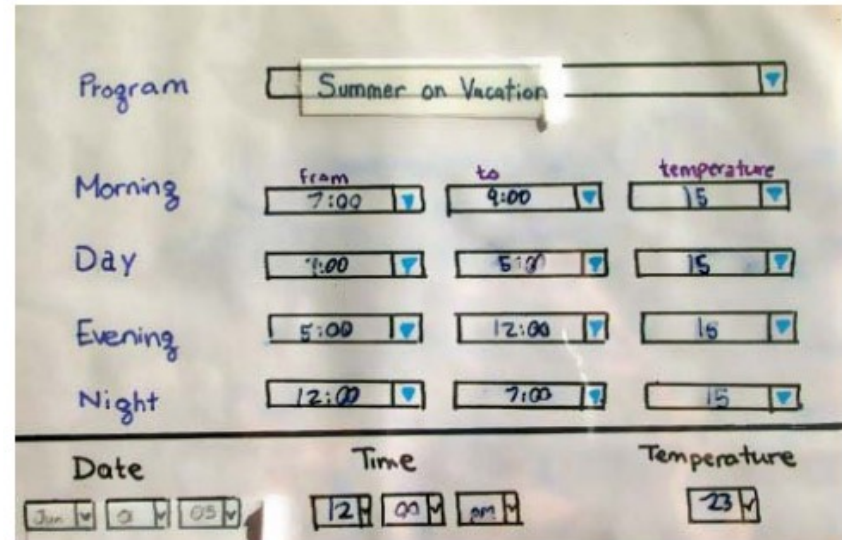 Program Summer on Vacation
from to temperature
Morning 7:00 9:00 15
Day 9:00 5:00 15
Evening 5:00 12:00 15
Night 12:00 7:00 15
Date Time Temperature
Jun 05 12 00 23